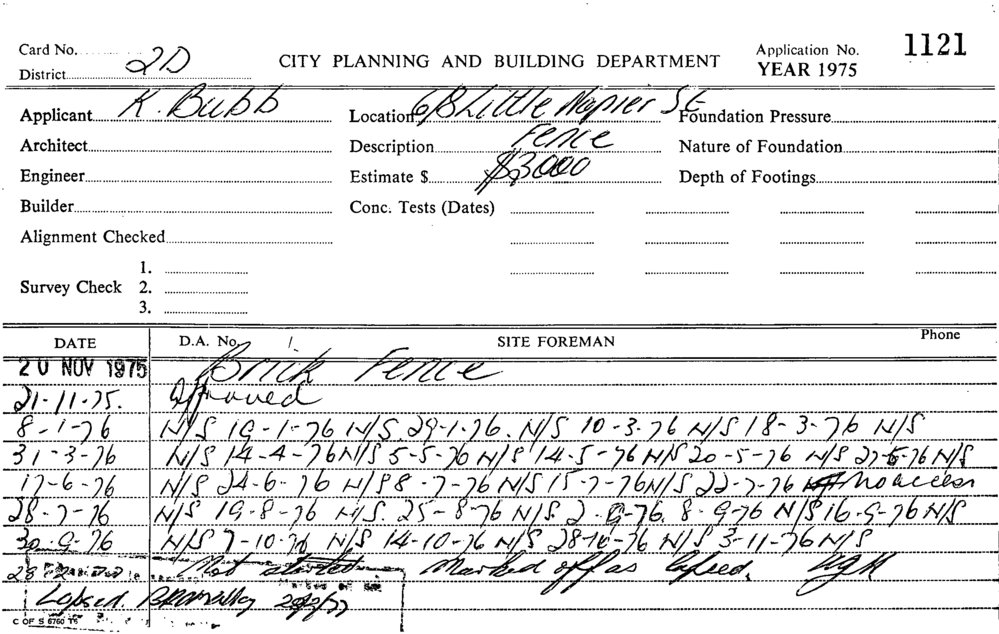 Card No. 2D CITY PLANNING AND BUILDING DEPARTMENT Application No. 1121
District YEAR 1975
Applicant K. Bubb Location 6B Little Napier St Foundation Pressure
Architect Description Fence Nature of Foundation
Engineer Estimate $ $3,000 Depth of Footings
Builder Conc. Tests (Dates)
Alignment Checked
1.
Survey Check 2.
3.
DATE D.A. No. SITE FOREMAN Phone
20 NOV 1975 Brick Fence
21-11-75. Approved
8-1-76 N/S 19-1-76 N/S. 29-1-76. N/S 10-3-76 N/S 18-3-76 N/S
31-3-76 N/S 14-4-76 N/S 5-5-76 N/S 14-5-76 N/S 20-5-76 N/S 27-5-76 N/S
17-6-76 N/S 24-6-76 N/S 8-7-76 N/S 15-7-76 N/S 22-7-76 No access
28-7-76 N/S 19-8-76 N/S. 25-8-76 N/S 2-9-76. 8-9-76 N/S 16-9-76 N/S
30-9-76 N/S 7-10-76 N/S 14-10-76 N/S 28-10-76 N/S 3-11-76 N/S
Not started Marked off as lapsed.
Lapsed.
C OF S 6760 T6